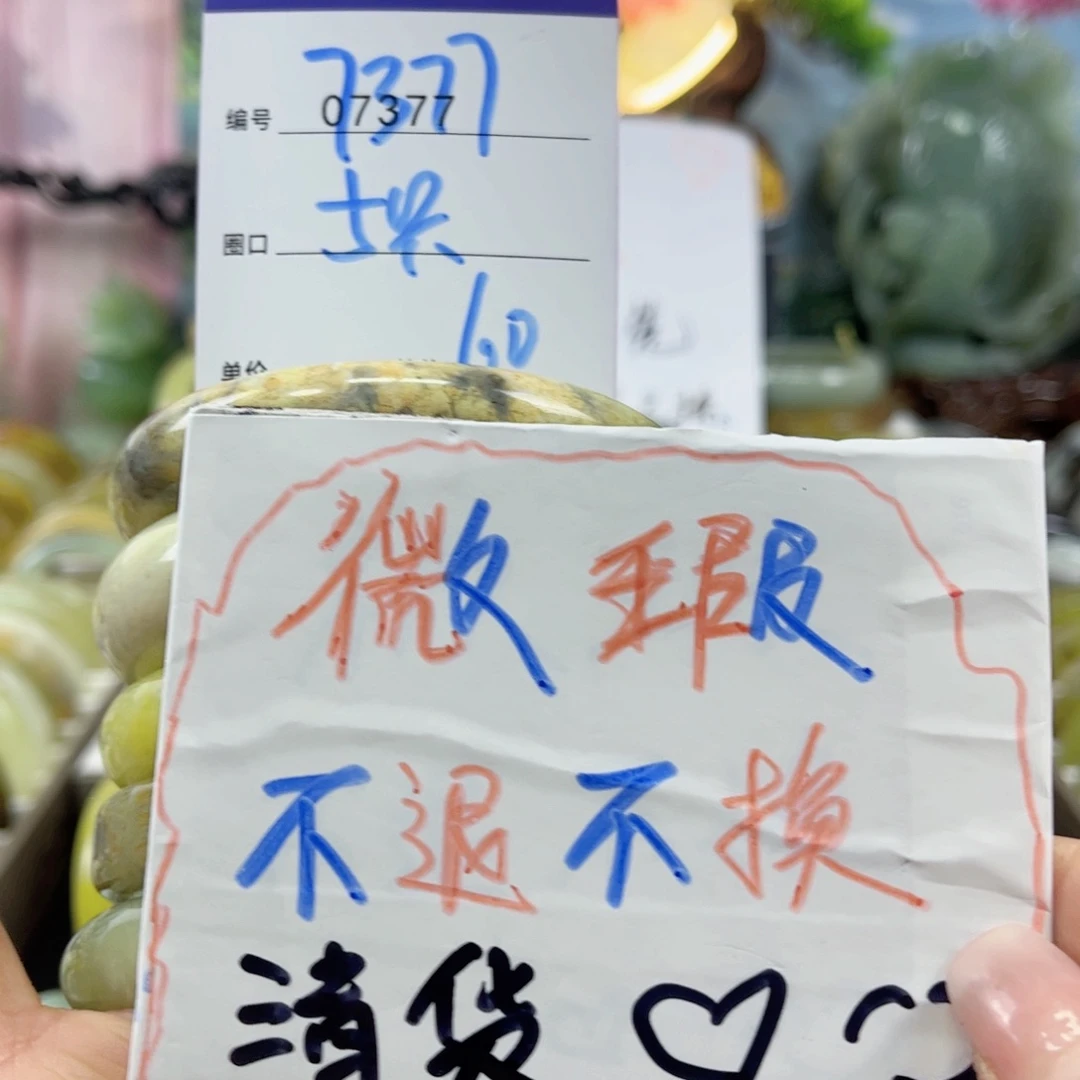 编号 07377
7377
圈口 士块
单价 60
微瑕
不退不换
清货♡